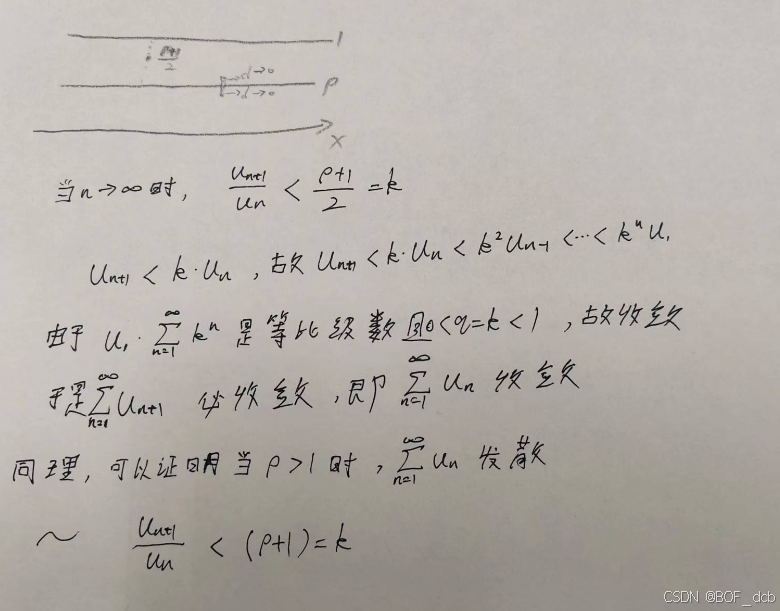 1
ρ+1/2
d→0
ρ
d→0
x
当n→∞时, u_{n+1}/u_n < (ρ+1)/2 = k
u_{n+1} < k·u_n , 故 u_{n+1} < k·u_n < k²u_{n-1} < … < kⁿu₁
由于 u₁·∑_{n=1}^{∞} kⁿ 是等比级数且0<q=k<1 , 故收敛
于是∑_{n=1}^{∞} u_{n+1} 必收敛 , 即 ∑_{n=1}^{∞} u_n 收敛
同理, 可以证明当 ρ>1 时 , ∑_{n=1}^{∞} u_n 发散
~ u_{n+1}/u_n < (ρ+1) = k
CSDN @BOF_dcb